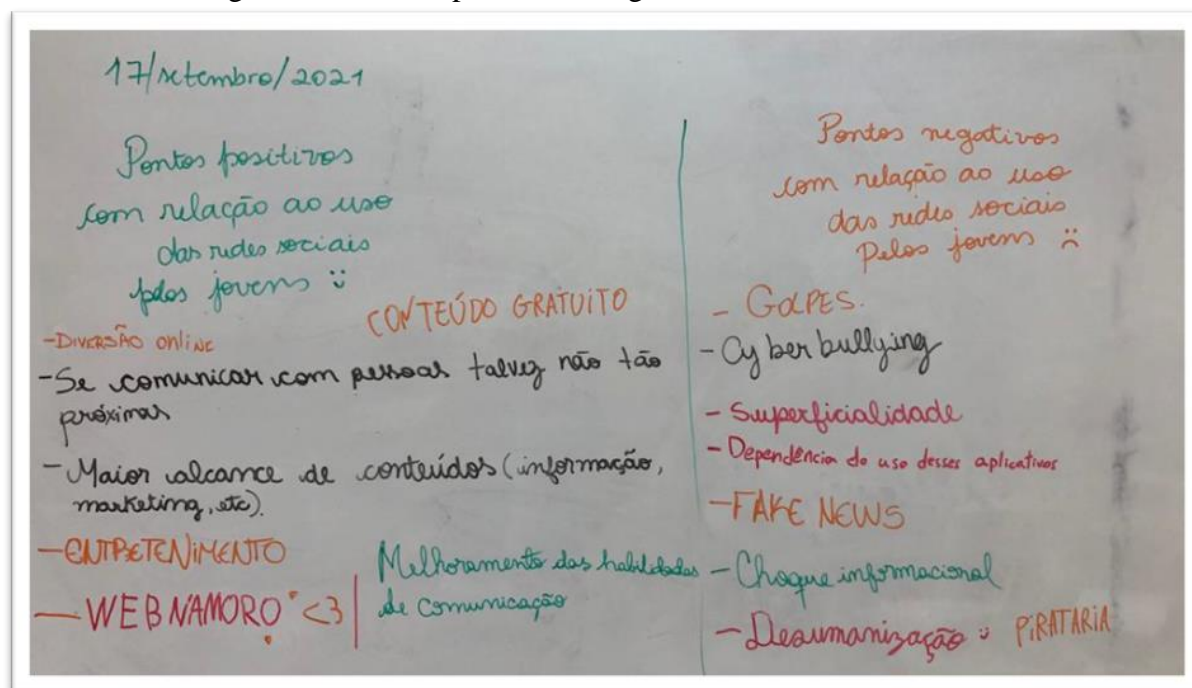 17/setembro/2021
Pontos positivos
com relação ao uso
das redes sociais
pelos jovens :)
CONTEÚDO GRATUITO
-DIVERSÃO online
-Se comunicar com pessoas talvez não tão
próximas
-Maior alcance de conteúdos (informação,
marketing, etc).
-ENTRETENIMENTO
-WEBNAMORO <3
Melhoramento das habilidades
de comunicação
Pontos negativos
com relação ao uso
das redes sociais
Pelos jovens :(
- GOLPES.
- Cyberbullying
- Superficialidade
- Dependência do uso desses aplicativos
-FAKE NEWS
- Choque informacional
- Desumanização :)
PIRATARIA